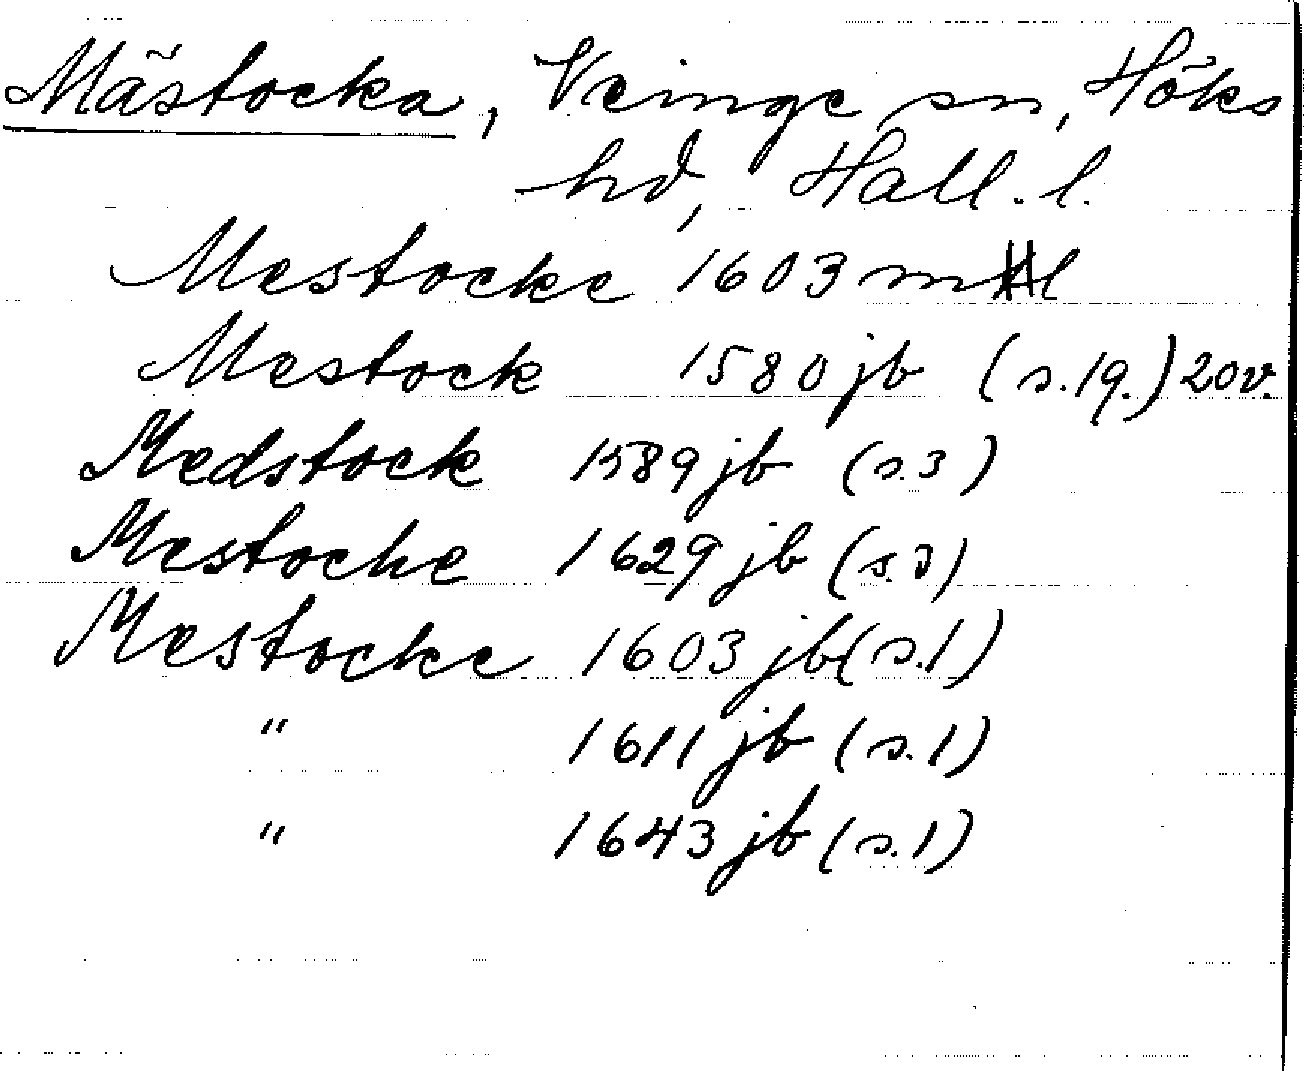 Mästocka, Veinge sn, Höks
hd, Hall. l.
Mestocke 1603 ml
Mestock 1580 jb (s.19.) 20v.
Medstock 1589 jb (s.3)
Mestocke 1629 jb (s.3)
Mestocke 1603 jb (s.1)
" 1611 jb (s.1)
" 1643 jb (s.1)